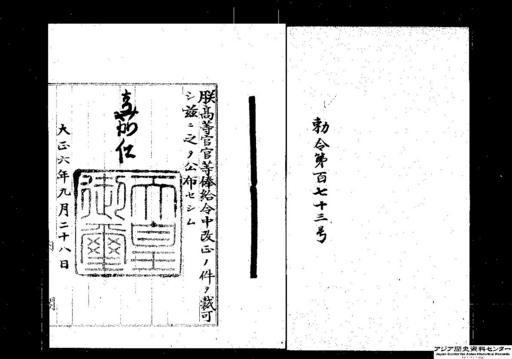 勅令第百七十三号
朕高等官官等俸給令中改正ノ件ヲ裁可
シ茲ニ之ヲ公布セシム
嘉仁
天皇
御璽
大正六年九月二十八日
アジア歴史資料センター
Japan Center for Asian Historical Records